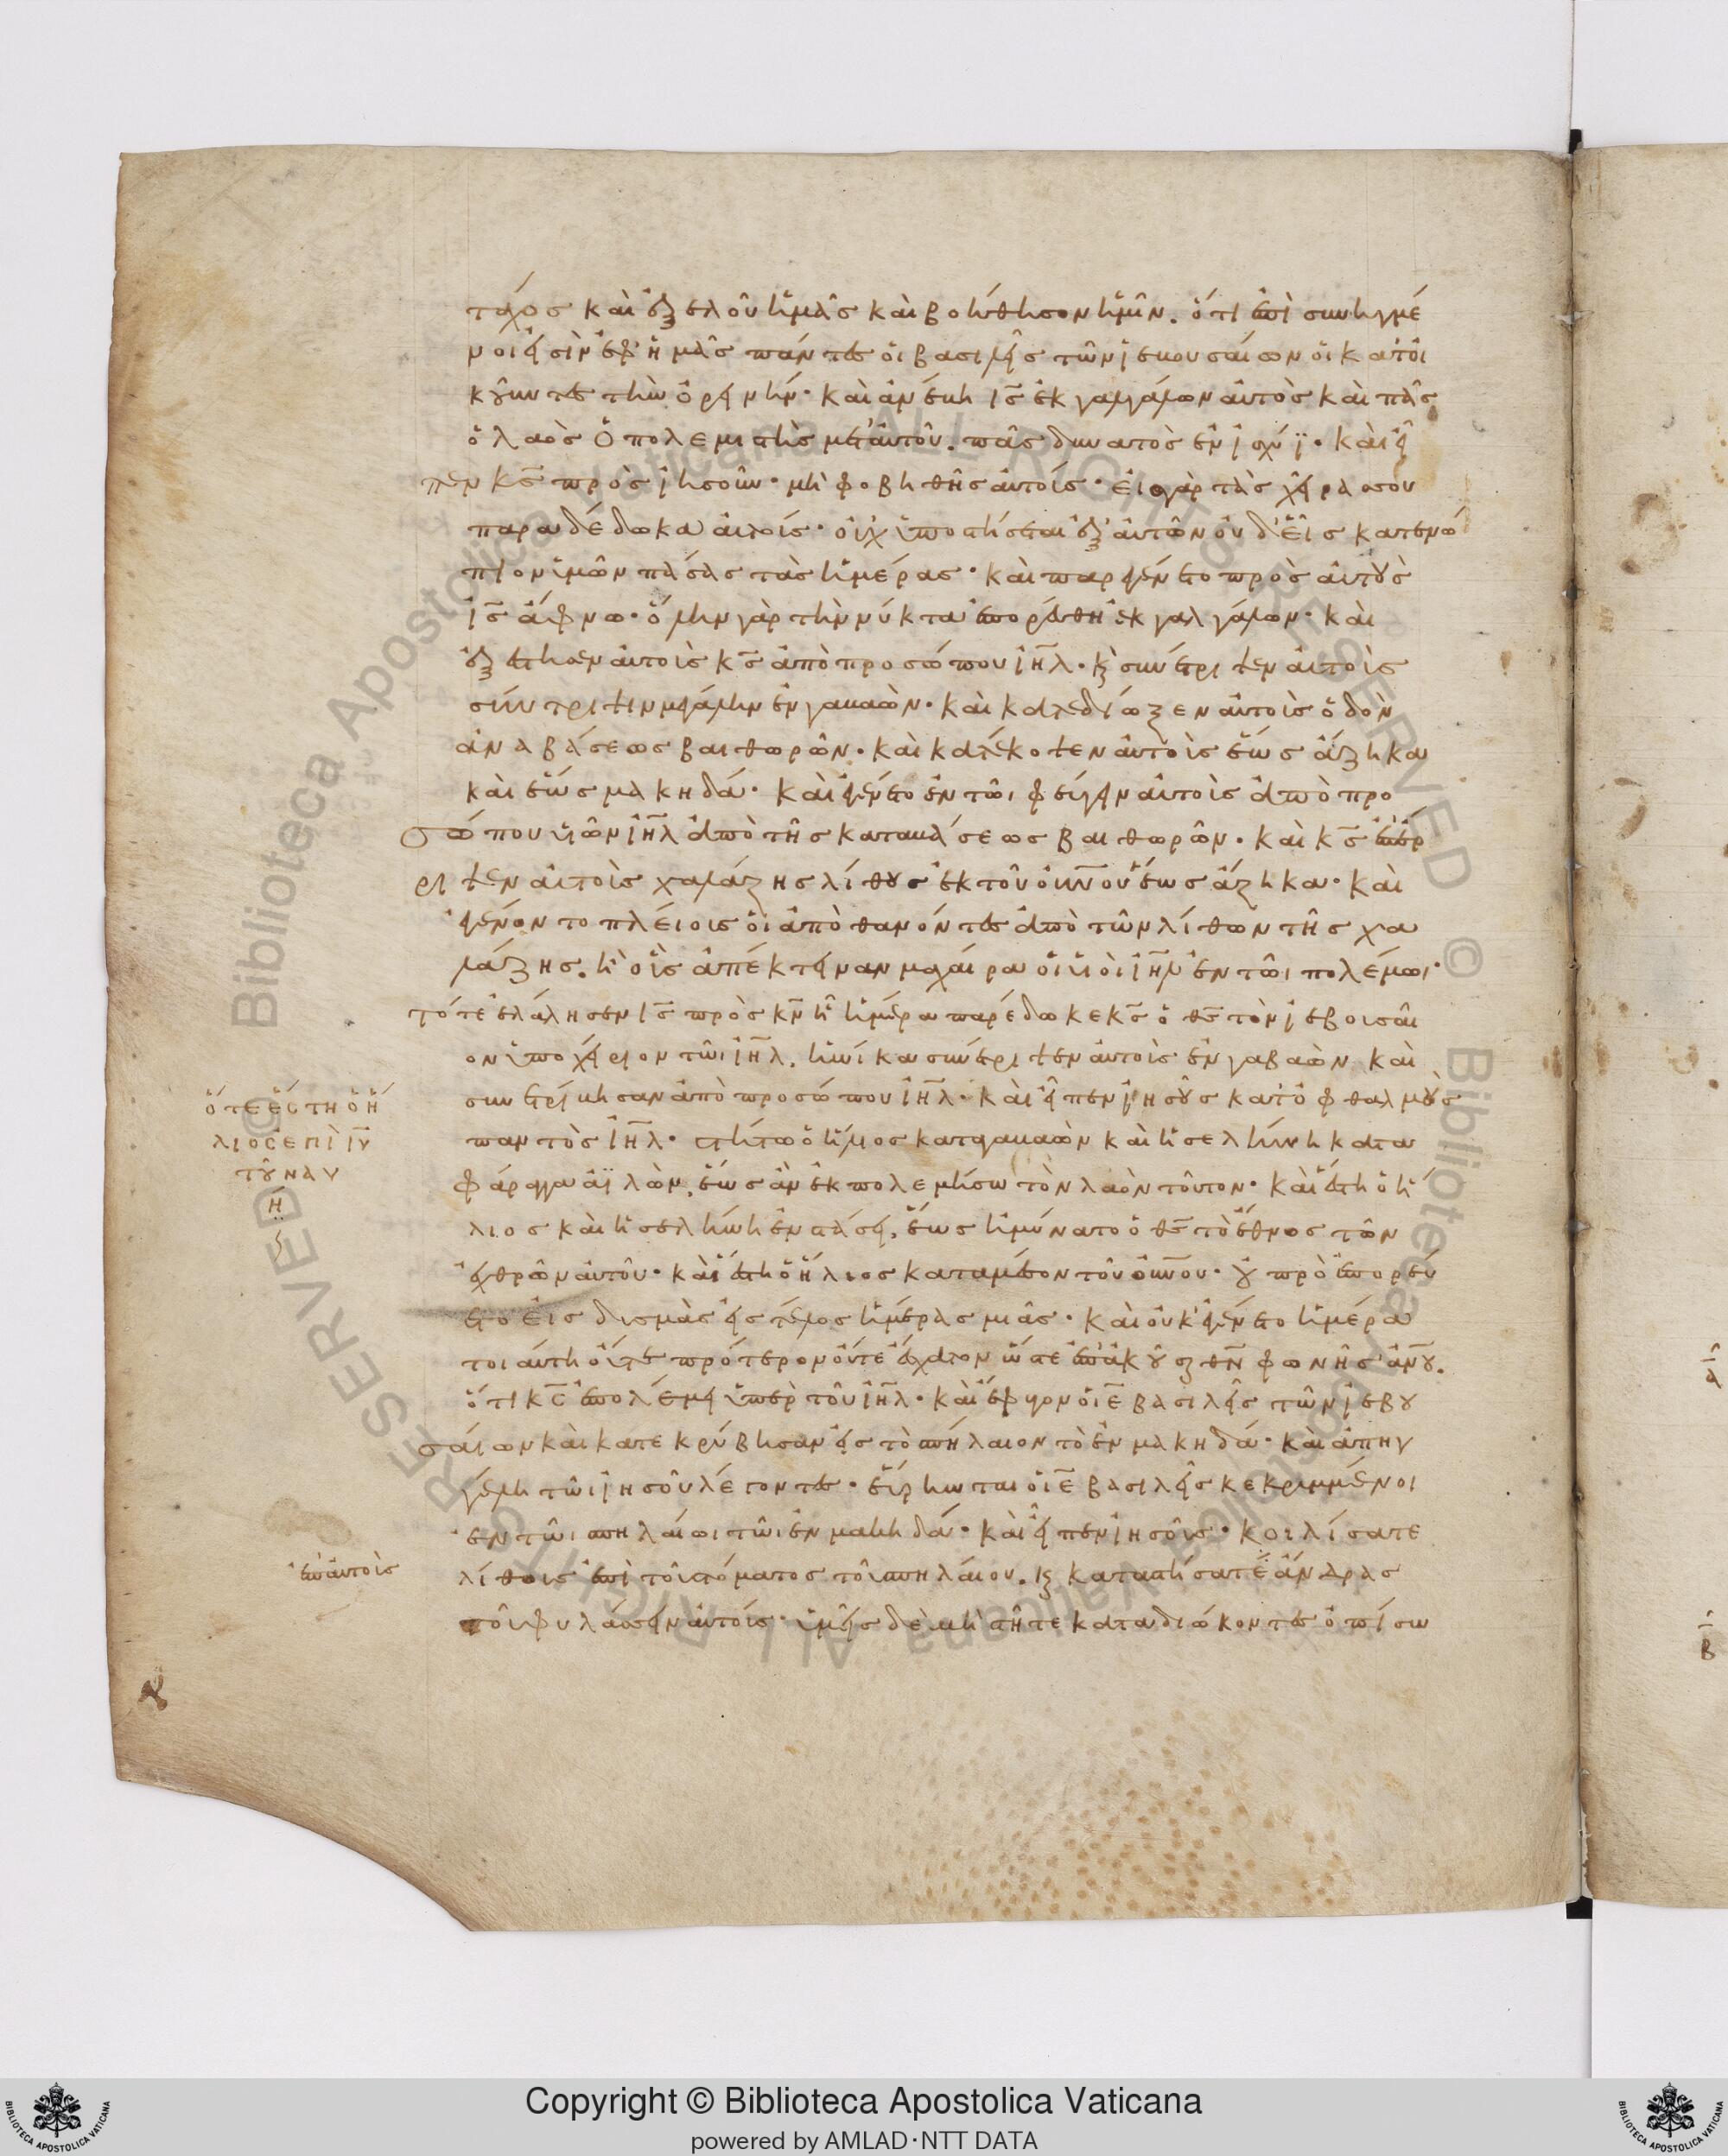 τάχος καὶ ἐξελοῦ ἡμᾶς καὶ βοήθησον ἡμῖν. ὅτι ἐπὶ συνηγμέ
νοι εἰσὶν ἐφ' ἡμᾶς πάντες οἱ βασιλεῖς τῶν ἰεβουσαίων οἱ κατοι
κοῦντες τὴν ὀρεινήν· καὶ ἀνέβη ἰς ἐκ γαλγάλων αὐτὸς καὶ πᾶς
ὁ λαὸς ὁ πολεμιστὴς μετ' αὐτοῦ. πᾶς δυνατὸς ἐν ἰσχύϊ· καὶ εἶ
πεν κς πρὸς ἰησοῦν· μὴ φοβηθῆς αὐτούς· εἰς γὰρ τὰς χεῖρας σου
παραδέδωκα αὐτούς· οὐχ ὑποστήσεται ἐξ αὐτῶν οὐδ' εἷς κατενώ
πιον ὑμῶν πάσας τὰς ἡμέρας· καὶ παρεγένετο πρὸς αὐτοὺς
ἰς ἄφνω· ὅλην γὰρ τὴν νύκτα ἐπορεύθη ἐκ γαλγάλων· καὶ
ἐξέστησεν αὐτοὺς κς ἀπὸ προσώπου ἰηλ· κ συνέτριψεν αὐτοὺς
σύντριψιν μεγάλην ἐν γαβαών· καὶ κατεδίωξεν αὐτοὺς ὁδὸν
ἀναβάσεως βαιθωρῶν· καὶ κατέκοψεν αὐτοὺς ἕως ἄζηκα
καὶ ἕως μακηδά· καὶ ἐγένετο ἐν τῶι φεύγειν αὐτοὺς ἀπὸ προ
σώπου υἱῶν ἰηλ ἀπὸ τῆς καταβάσεως βαιθωρῶν· καὶ κς ἐπέρ
ριψεν αὐτοὺς χαλάζης λίθους ἐκ τοῦ οὐνου ἕως ἄζηκα· καὶ
ἐγένοντο πλείους οἱ ἀποθανόντες ἀπὸ τῶν λίθων τῆς χα
λάζης. ἢ οὓς ἀπέκτειναν μαχαίρα οἱ υἱοὶ ἰηλ ἐν τῶι πολέμωι·
τότε ἐλάλησεν ἰς πρὸς κν ἧ ἡμέρα παρέδωκε κς ὁ θς τὸν ἰεβουσαῖ
ον ὑποχείριον τῶι ἰηλ. ἡνίκα συνέτριψεν αὐτοὺς ἐν γαβαών καὶ
συνετρίβησαν ἀπὸ προσώπου ἰηλ· καὶ εἶπεν ἰησοῦς κατ' ὀφθαλμοὺς
παντὸς ἰηλ· στήτω ὁ ἥλιος κατὰ γαβαὼν καὶ ἡ σελήνη κατὰ
φάραγγα αἰλών. ἕως ἂν ἐκπολεμήσω τὸν λαὸν τοῦτον· καὶ ἔστη ὁ ἥ
λιος καὶ ἡ σελήνη ἐν στάσει, ἕως ἠμύνατο ὁ θς τὸ ἔθνος τῶν
ἐχθρῶν αὐτοῦ· καὶ ἔστη ὁ ἥλιος καταμέσον τοῦ οὐνου· οὐ προεπορεύ
ετο εἰς δυσμὰς εἰς τέλος ἡμέρας μιᾶς· καὶ οὐκ ἐγένετο ἡμέρα
τοιαύτη οὔτε πρότερον οὔτε ἔσχατον ὥστε ἐπακοῦσαι θν φωνῆς ἀνου.
ὅτι κς ἐπολέμει ὑπὲρ τοῦ ἰηλ· καὶ ἔφυγον οἱ ε βασιλεῖς τῶν ἰεβου
σαίων καὶ κατεκρύβησαν εἰς τὸ σπήλαιον τὸ ἐν μακηδά· καὶ ἀπηγ
γέλη τῶι ἰησοῦ λέγοντες· εὕρηνται οἱ ε βασιλεῖς κεκρυμμένοι
ἐν τῶι σπηλαίωι τῶι ἐν μακηδά· καὶ εἶπεν ἰησοῦς· κυλίσατε
λίθους ἐπὶ τοῦ στόματος τοῦ σπηλαίου. κ καταστήσατε ἄνδρας
τοῦ φυλάσσειν αὐτούς· ὑμεῖς δὲ μὴ στῆτε καταδιώκοντες ὀπίσω
ὅτε ἔστη ὁ ἥ
λιος ἐπὶ ἰυ
τοῦ ναυ
ἐπ' αὐτοὺς